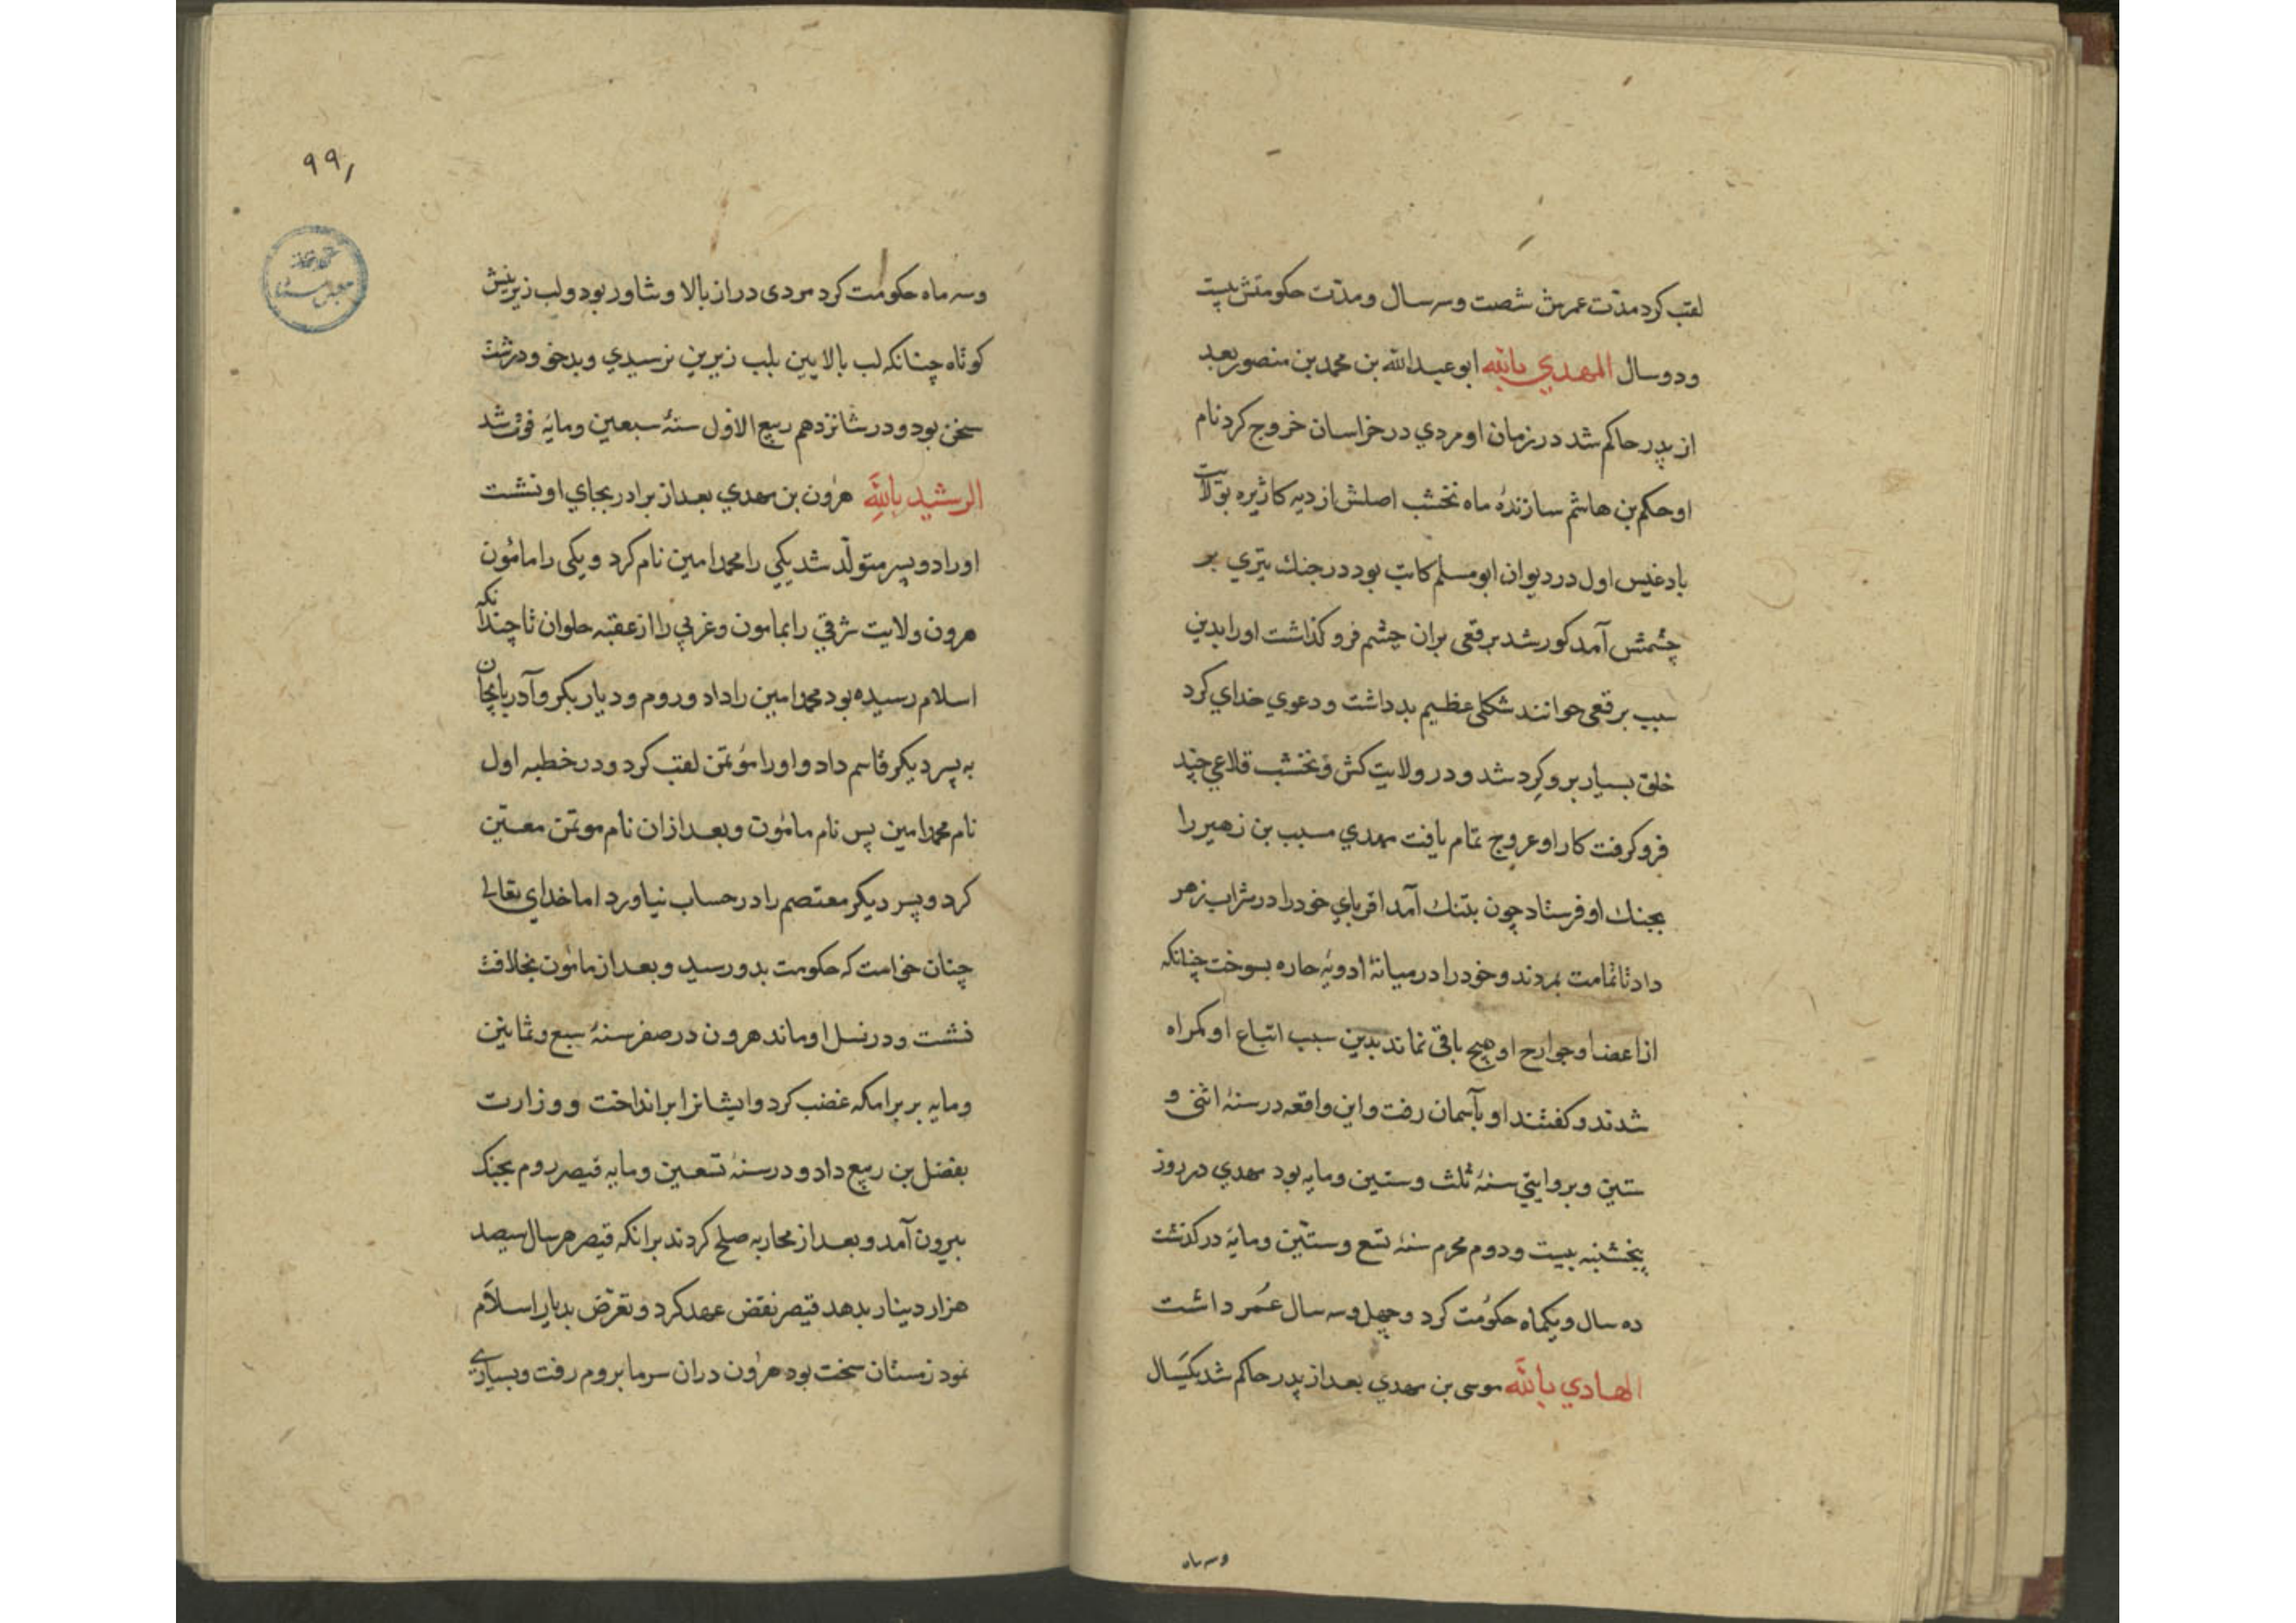 لقب کرد مدّت عمرش شصت و سه سال و مدّت حکومتش بیست
و دو سال المهدي بالله ابو عبدالله بن محمد بن منصور بعد
از پدر حاکم شد در زمان او مردي در خراسان خروج کرد نام
او حکم بن هاشم سازندهٔ ماه نخشب اصلش از دیه کاژیره بولایت
بادغیس اول در دیوان ابو مسلم کاتب بود در جنك تیري بر
چشمش آمد کور شد برقعی بران چشم فرو کذاشت او را بدین
سبب برقعی خوانند شکلی عظیم بد داشت و دعوي خداي کرد
خلق بسیار برو کرد شد و در ولایت کش و نخشب قلاعی چند
فرو کرفت کار او عروج تمام یافت مهدي مسیب بن زهیر را
بجنك او فرستاد چون بتنك آمد اقرباي خود را در شراب زهر
داد تا تمامت بمردند و خود را در میانهٔ ادویهٔ حاره بسوخت چنانکه
از اعضا و جوارح او هیچ باقی نماند بدین سبب اتباع او کمراه
شدند و کفتند او بآسمان رفت و این واقعه در سنهٔ اثنی و
ستین و بروایتي سنهٔ ثلث و ستین و مایه بود مهدي در روز
پنجشنبه بیست و دوم محرم سنهٔ تسع و ستّین و مایهٔ در کذشت
ده سال و یکماه حکومت کرد و چهل و سه سال عُمر داشت
الهادي بالله موسی بن مهدي بعد از پدر حاکم شد یکسال
و سه ماه
٩٩
و سه ماه حکومت کرد مردی دراز بالا و شاور بود و لب زیرینش
کوتاه چنانکه لب بالایین بلب زیرین نرسیدي و بدخو و درشت
سخن بود و در شانزدهم ربیع الاول سنهٔ سبعین و مایهٔ فوت شد
الرشید بالله هرون بن مهدي بعد از برادر بجاي او نشست
او را دو پسر متولّد شد یکي را محمد امین نام کرد و یکی را مامُون
هرون ولایت شرقي را بمامون و غربي را از عقبه حلوان تا چندانکه
اسلام رسیده بود محمد امین را داد و روم و دیار بکر و آدربایجان
به پسر دیکر قاسم داد و او را مؤتمن لقب کرد و در خطبه اول
نام محمد امین پس نام مامون و بعد ازان نام موتمن معیّن
کرد و پسر دیکر معتصم را در حساب نیاورد اما خداي تعالی
چنان خواست که حکومت بدو رسید و بعد از مامون بخلافت
نشست و در نسل او ماند هرون در صفر سنهٔ سبع و ثمانین
و مایه بر برامکه غضب کرد و ایشانرا بر انداخت و وزارت
بفضل بن ربیع داد و در سنهٔ تسعین و مایه قیصر روم بجنك
بیرون آمد و بعد از محاربه صلح کردند برانکه قیصر هر سال سیصد
هزار دینار بدهد قیصر نقض عهد کرد و تعرّض بدیار اسلام
نمود زمستان سخت بود هرون دران سرما بروم رفت و بسیاري